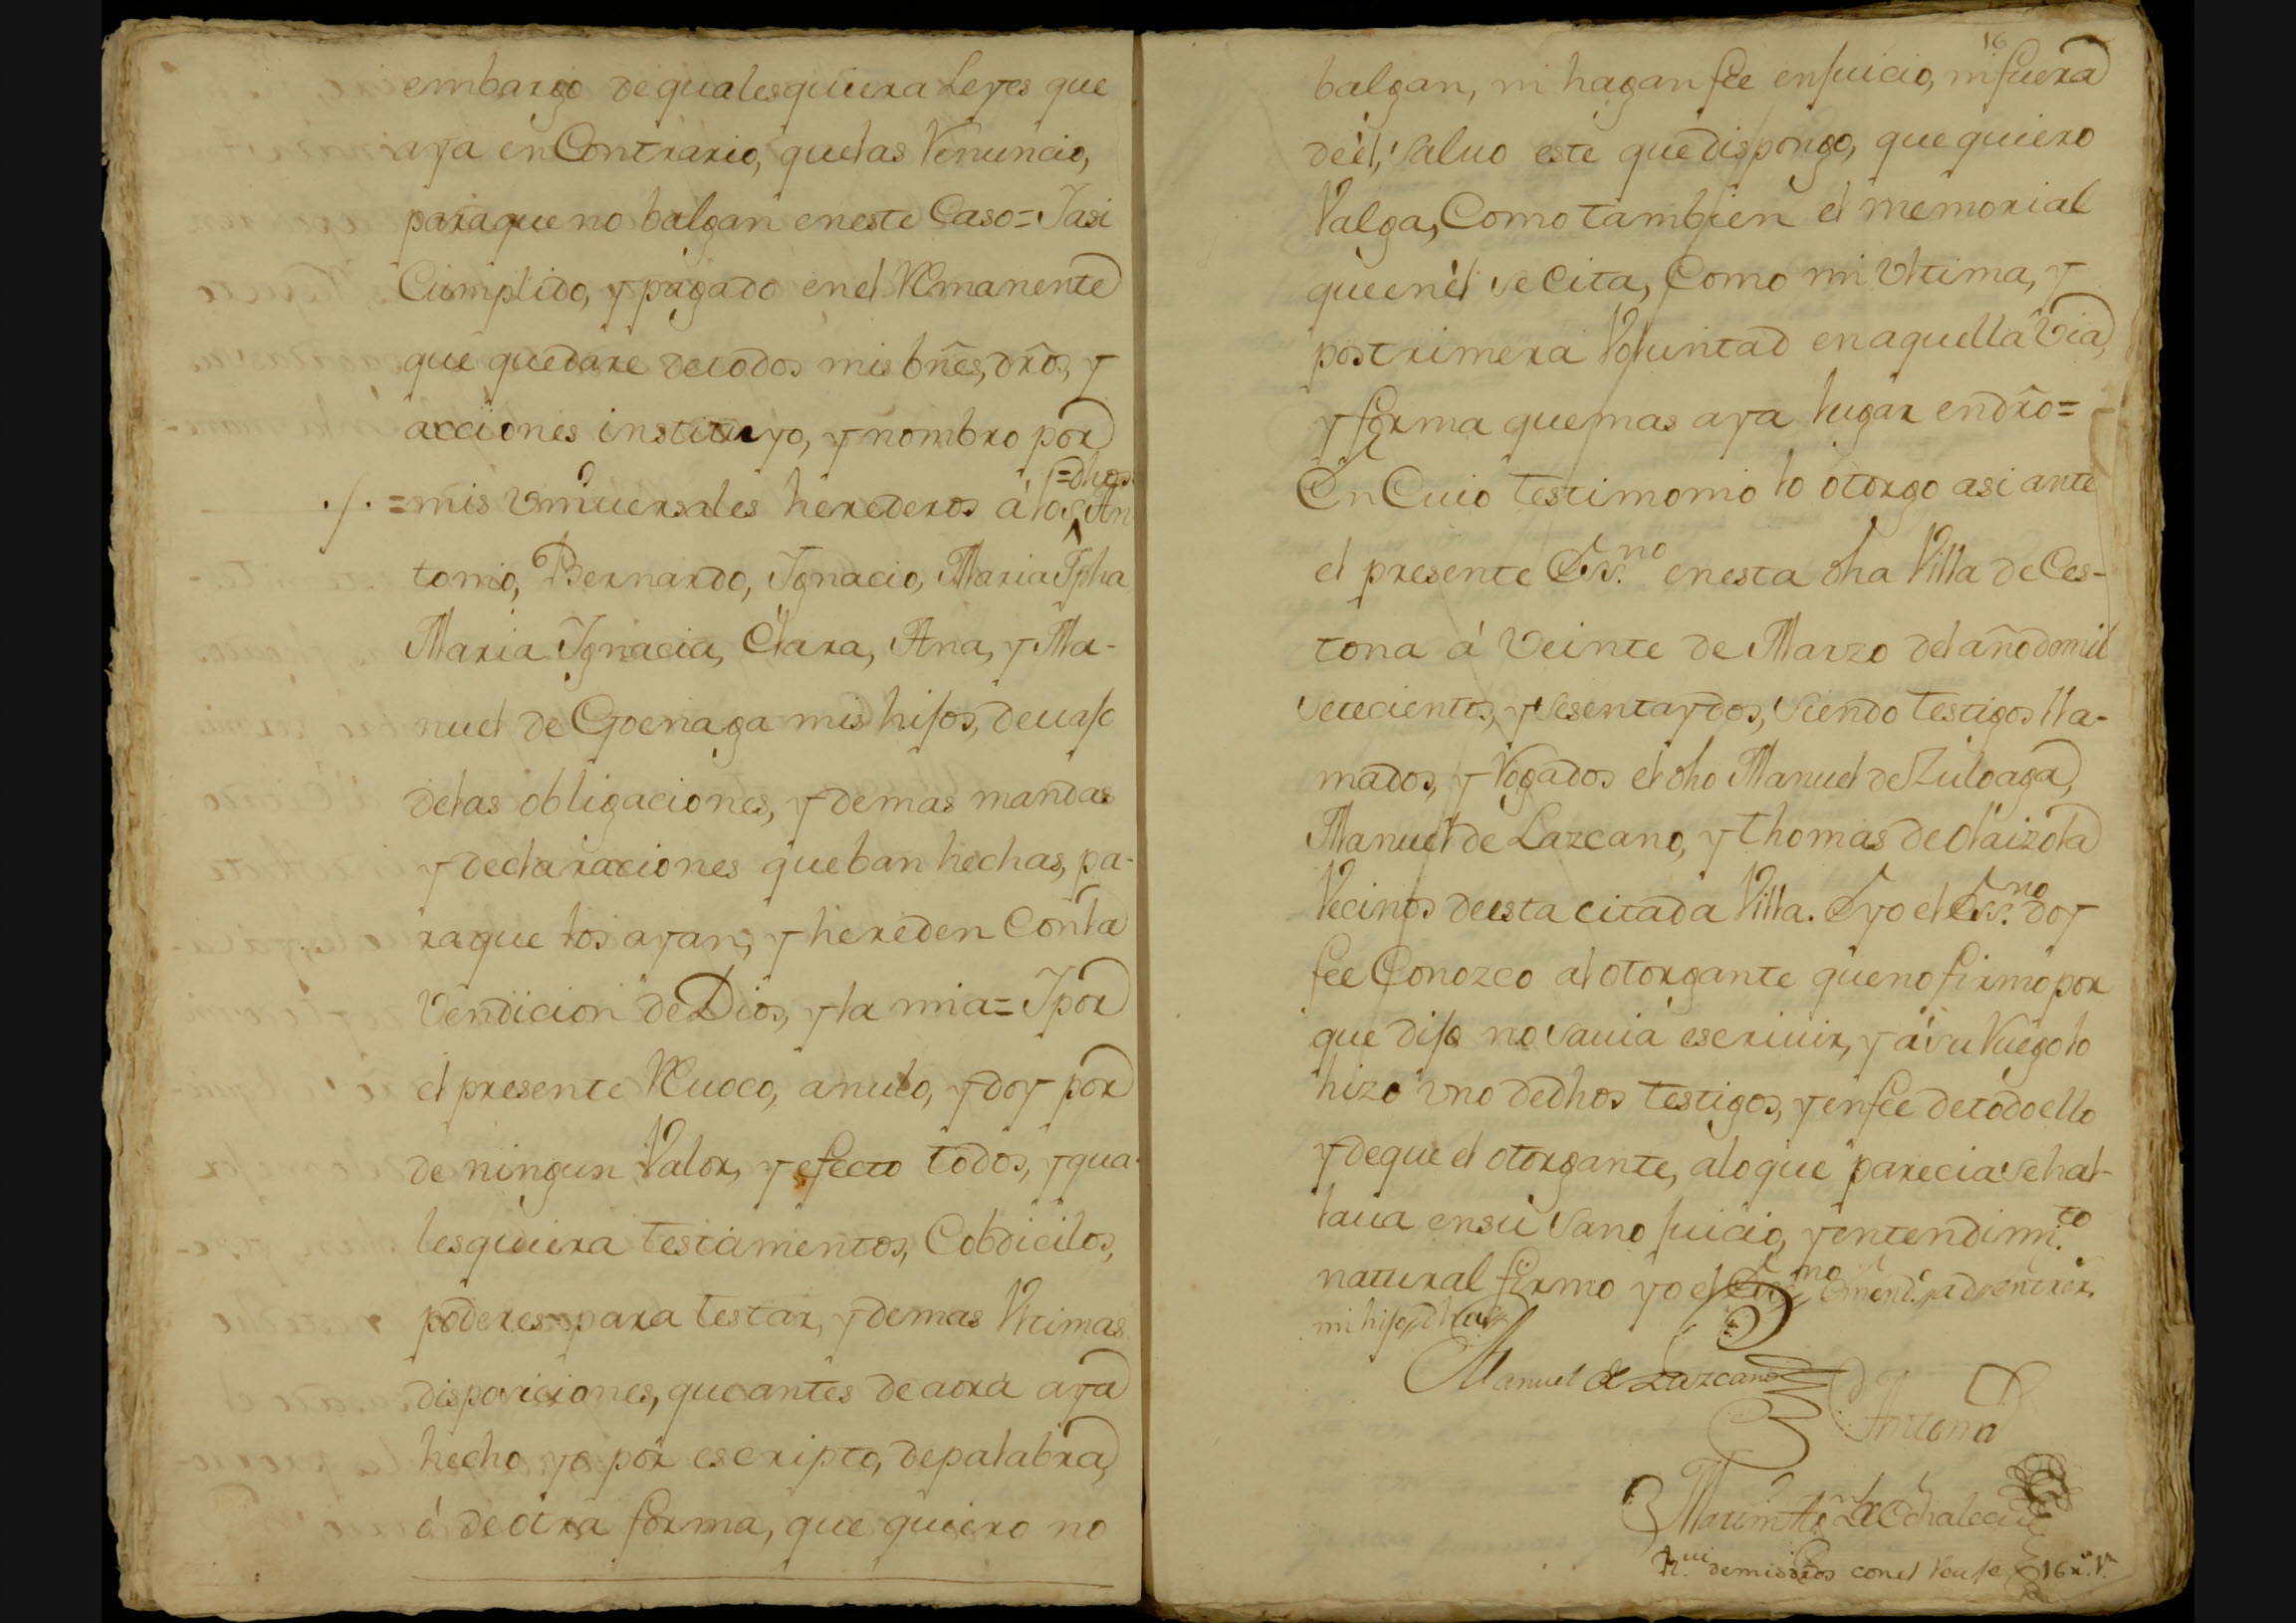 embargo de qualesquiera Leyes que
aya en Contrario, que las Renuncio,
para que no balgan en este Caso = Y asi
Cumplido, y pagado en el Remanente
que quedare de todos mis bñes, dr̃os, y
acciones instituyo, y nombro por
=dhos
./. = mis Vniuersales herederos á los An
tonio, Bernardo, Ygnacio, Maria Jpha
Maria Ygnacia, Clara, Ana, y Ma-
nuel de Goenaga mis hijos, deuajo
de las obligaciones, y demas mandas
y declaraciones que ban hechas, pa-
ra que los ayan, y hereden Con la
Vendicion de Dios, y la mia = Y por
el presente Reuoco, anulo, y doy por
de ningun Valor, y efecto todos, y qua-
lesquiera testamentos, Cobdicilos,
poderes para testar, y demas Vltimas
disposiciones, que antes de aora aya
hecho yo por escripto, de palabra,
ó de otra forma, que quiero no
16
balgan, ni hagan fee en juicio, ni fuera
de él, saluo este que dispongo, que quiero
Valga, Como tambien el memorial
que en él se Cita, Como mi Vltima, y
postrimera Voluntad en aquella Via,
y forma que mas aya lugar en dr̃o =
En Cuio testimonio lo otorgo asi ante
el presente Ess.no en esta dha Villa de Ces-
tona á Veinte de Marzo del año de mil
setecientos, y sesenta y dos, siendo testigos lla-
mados, y Rogados el dho Manuel de Zuloaga,
Manuel de Lazcano, y Thomas de Olaizola
Vecinos de esta citada Villa. E yo el Ess.no doy
fee Conozco al otorgante que no firmó por
que dijo no sauia escriuir, y á su Ruego lo
hizo vno de dhos testigos, y en fee de todo ello
y de que el otorgante, a lo que parecia se hal-
laua en su sano juicio, y entendim.to
natural firmo yo el Ess.no
mi hijo,
Manuel de Lazcano
Ante mi
de mis dr̃os con el 16 r.s V.n